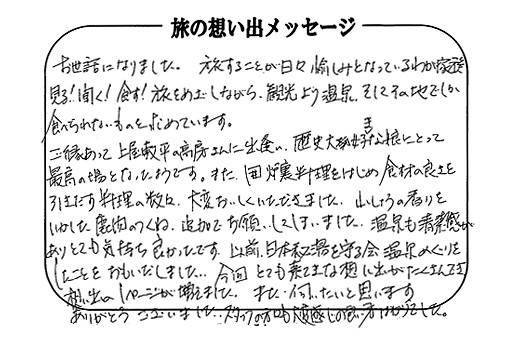 旅の想い出メッセージ
お世話になりました。 旅することが日々愉しみとなっているわが家族
見る!聞く!食す!旅をめざしながら、観光より温泉、そしてその地でしか
食べられないものを求めています。
ご縁あって 上屋敷平の高房さんに出逢い、歴史大好きな娘にとって
最高の場となったようです。また、囲炉裏料理をはじめ 食材の良さを
引きだす料理の数々、大変おいしくいただきました。山しょうの香りを
いかした鹿肉のつくね、追加でお願いしてしまいました。温泉も清潔感が
ありとても気持ち良かったです。以前、日本秘湯を守る会 温泉めぐりを
したことをおもいだしました。今回 とても素てきな想い出がたくさんでき
想い出の1ページが増えました。また伺いたいと思います
ありがとうございました。スタッフの方も